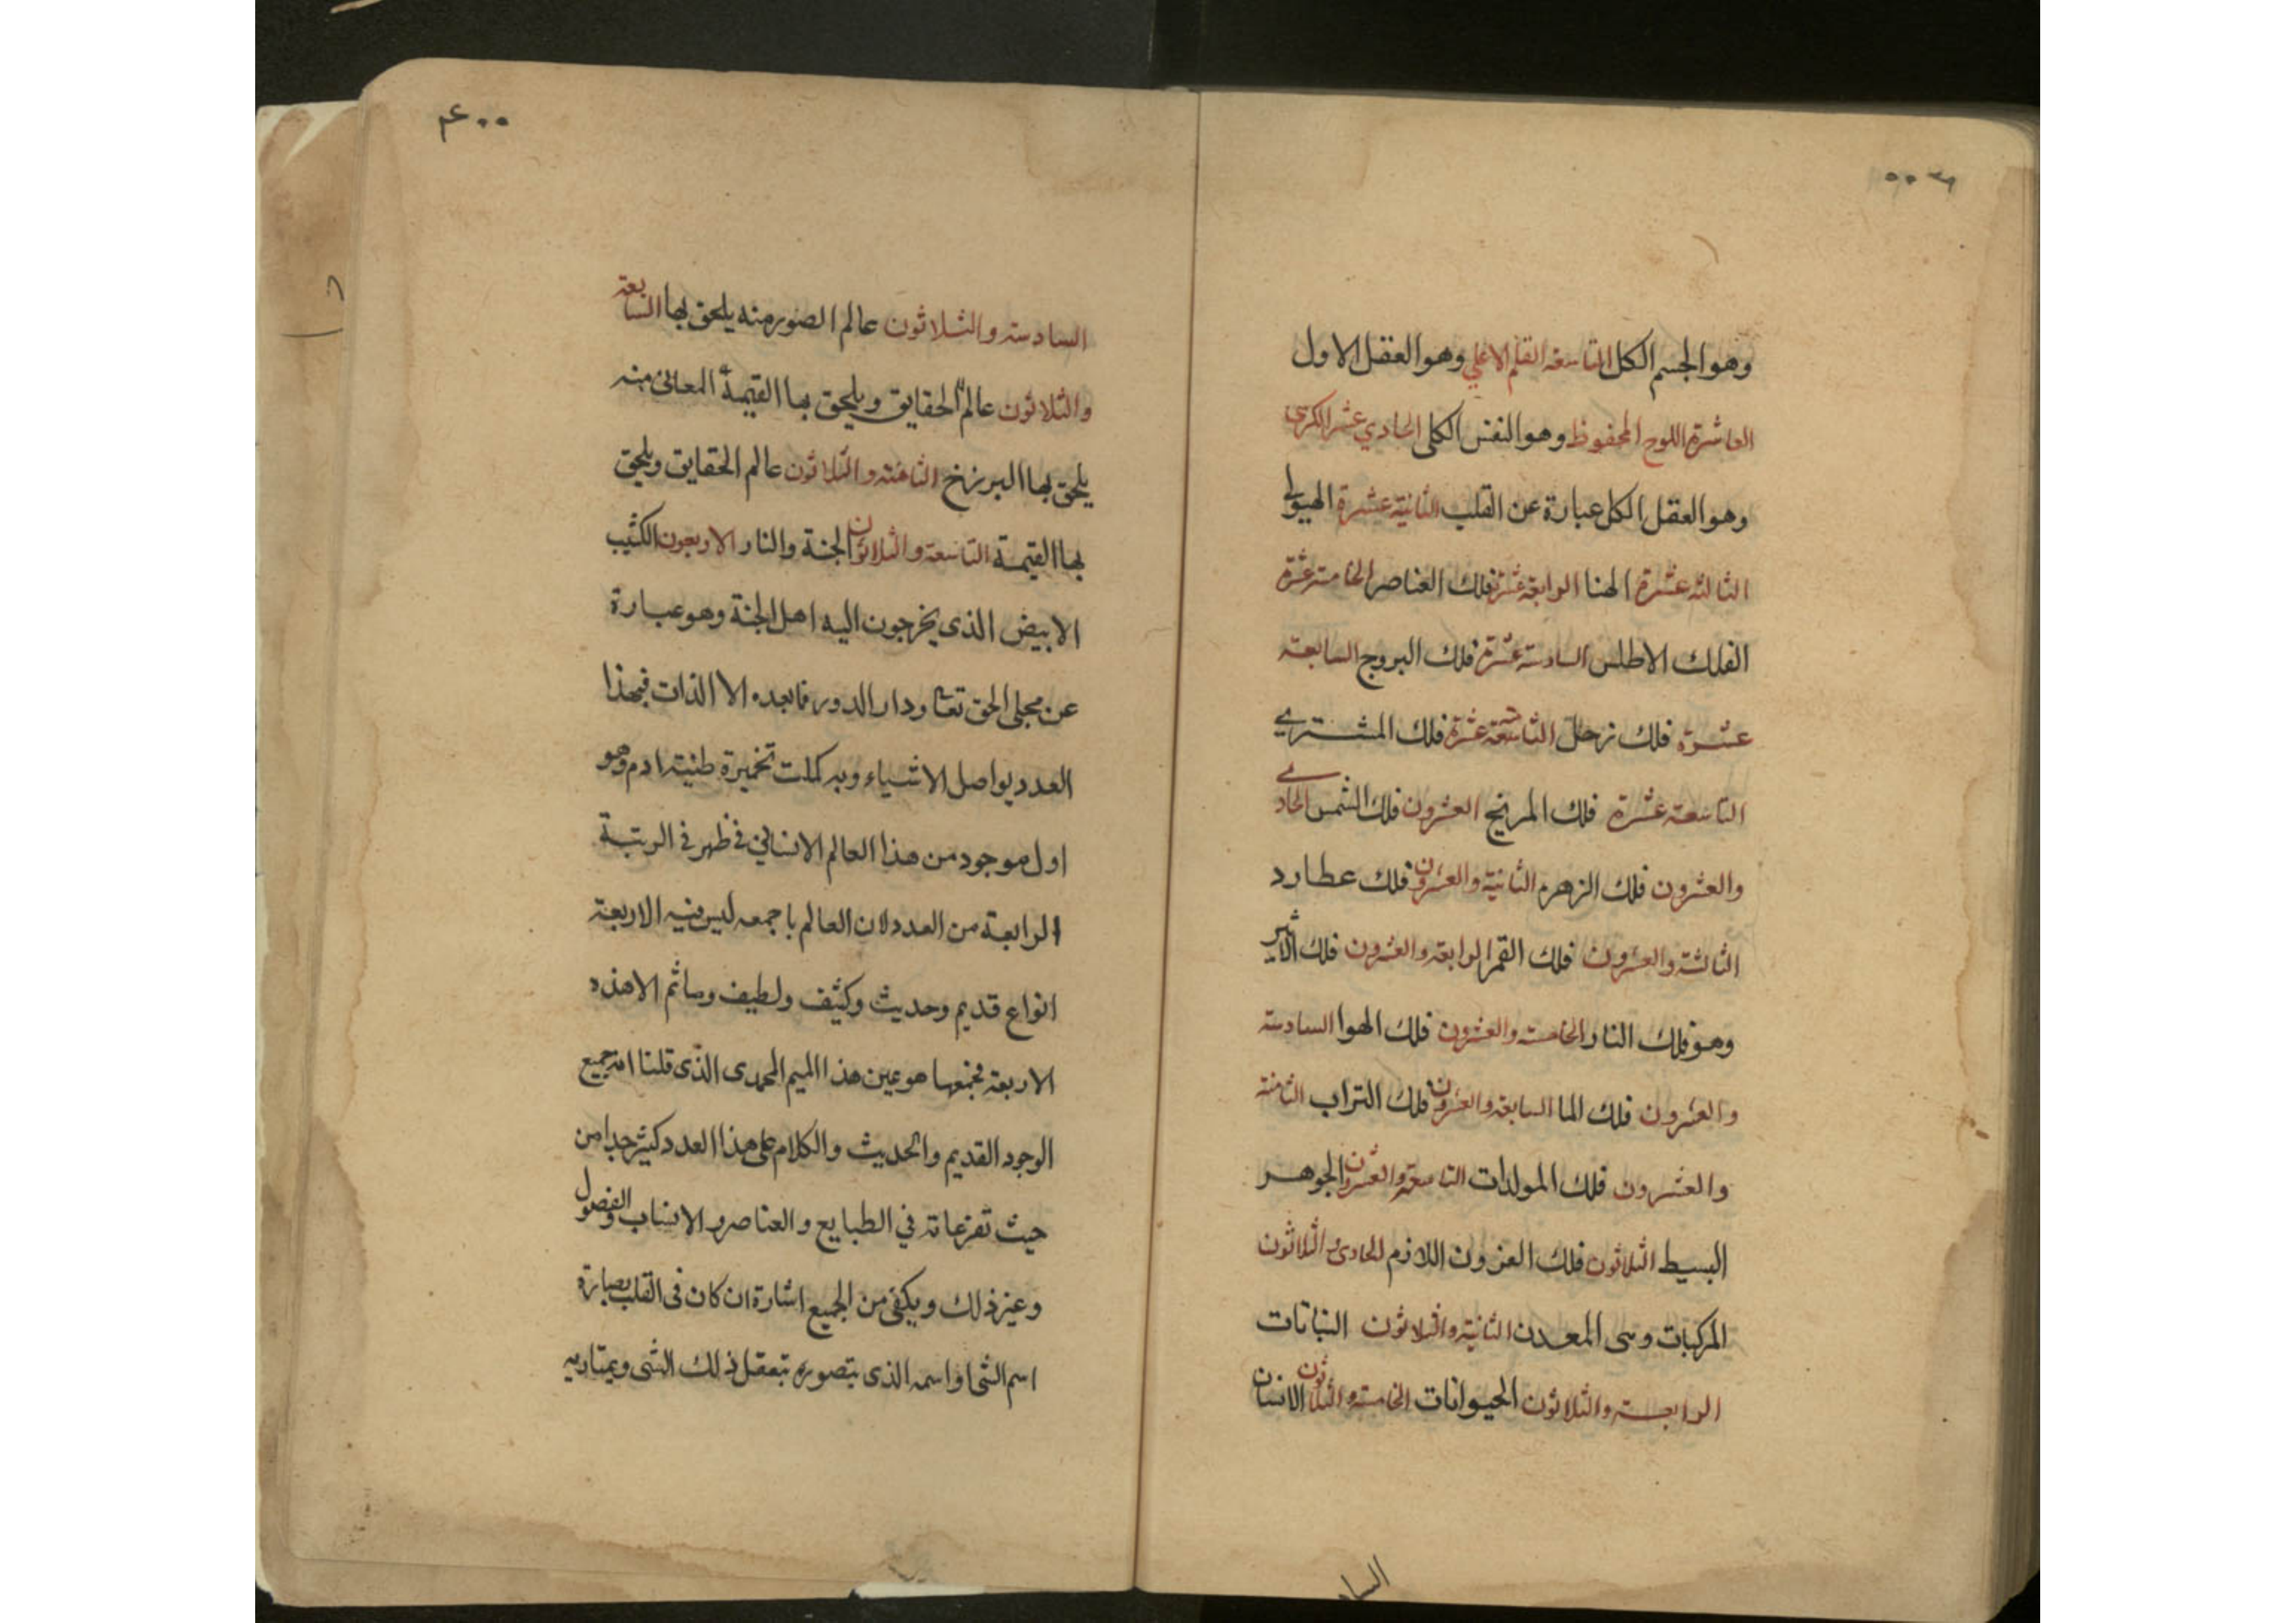 وهو الجسم الكل التاسعة القلم الاعلى وهو العقل الاول
العاشرة اللوح المحفوظ وهو النفس الكلى الحادي عشر الكرسى
وهو العقل الكل عبارة عن القلب الثانية عشرة الهيولى
الثالثة عشرة الهبا الرابعة عشرة فلك العناصر الخامسة عشرة
الفلك الاطلس السادسة عشرة فلك البروج السابعة
عشرة فلك زحل الثامنة عشرة فلك المشتري
التاسعة عشرة فلك المريخ العشرون فلك الشمس الحادي
والعشرون فلك الزهره الثانية والعشرون فلك عطارد
الثالثة والعشرون فلك القمر الرابعة والعشرون فلك الاثير
وهو فلك النار الخامسة والعشرون فلك الهوا السادسة
والعشرون فلك الما السابعة والعشرون فلك التراب الثامنة
والعشرون فلك المولدات التاسعة والعشرون الجوهر
البسيط الثلاثون فلك العرض اللازم الحادى والثلاثون
المركبات وهى المعدن الثانية والثلاثون النباتات
الرابعة والثلاثون الحيوانات الخامسة والثلاثون الانسان
السا
السادسة والثلاثون عالم الصور منه يلحق بها السابعة
والثلاثون عالم الحقايق ويلحق بها القيمة المعانى منه
يلحق بها البرزخ الثامنة والثلاثون عالم الحقايق ويلحق
بها القيمة التاسعة والثلاثون الجنة والنار الاربعون الكثيب
الابيض الذى يخرجون اليه اهل الجنة وهو عبارة
عن مجلى الحق تعا ودار الدور فما بعده الا الذات فبهذا
العدد يواصل الاشياء وبه كملت تخميرة طنية ادم وهو
اول موجود من هذا العالم الانسانى فظهر فى الرتبة
الرابعة من العدد لان العالم باجمعه ليس فيه الا اربعة
انواع قديم وحديث وكثيف ولطيف وماثم الا هذه
الاربعة فجمعها هو عين هذا الميم المحمدى الذى قلنا انه جميع
الوجود القديم والحديث والكلام على هذا العدد كثير جدا من
حيث تفرعاته في الطبايع والعناصر والانساب والفصول
وغير ذلك ويكفى من الجميع اشارة ان كان فى القلب بصارة
اسم الشى واسمه الذى يتصوره بتعقل ذلك الشى ويمتاز به